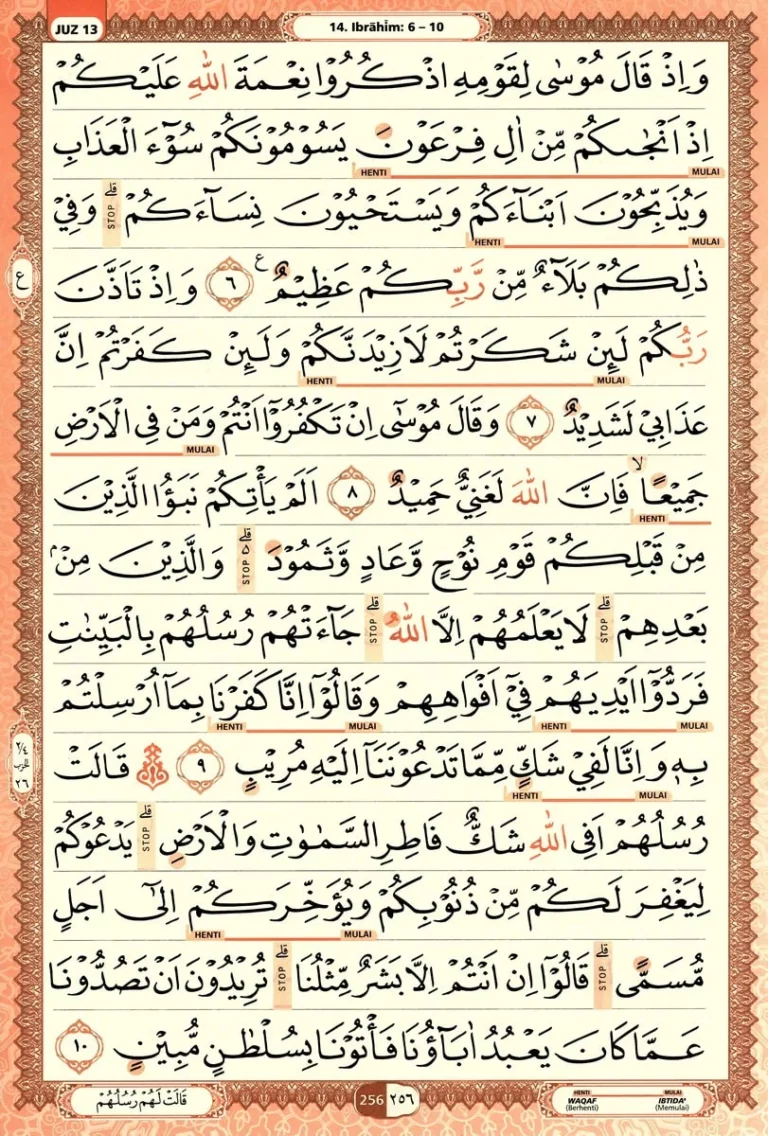 JUZ 13
14. Ibrāhīm: 6 – 10
وَاِذْ قَالَ مُوْسٰى لِقَوْمِهِ اذْكُرُوْا نِعْمَةَ اللّٰهِ عَلَيْكُمْ
اِذْ اَنْجٰىكُمْ مِّنْ اٰلِ فِرْعَوْنَ يَسُوْمُوْنَكُمْ سُوْۤءَ الْعَذَابِ
HENTI MULAI
وَيُذَبِّحُوْنَ اَبْنَاۤءَكُمْ وَيَسْتَحْيُوْنَ نِسَاۤءَكُمْ ۗ STOP وَفِيْ
HENTI MULAI
ع
ذٰلِكُمْ بَلَاۤءٌ مِّنْ رَّبِّكُمْ عَظِيْمٌ ࣖ ٦ وَاِذْ تَاَذَّنَ
رَبُّكُمْ لَىِٕنْ شَكَرْتُمْ لَاَزِيْدَنَّكُمْ وَلَىِٕنْ كَفَرْتُمْ اِنَّ
HENTI MULAI
عَذَابِيْ لَشَدِيْدٌ ٧ وَقَالَ مُوْسٰٓى اِنْ تَكْفُرُوْٓا اَنْتُمْ وَمَنْ فِى الْاَرْضِ
MULAI
جَمِيْعًا ۙ فَاِنَّ اللّٰهَ لَغَنِيٌّ حَمِيْدٌ ٨ اَلَمْ يَأْتِكُمْ نَبَؤُا الَّذِيْنَ
HENTI
مِنْ قَبْلِكُمْ قَوْمِ نُوْحٍ وَّعَادٍ وَّثَمُوْدَ ۗ ە STOP وَالَّذِيْنَ مِنْۢ
بَعْدِهِمْ ۗ STOP لَا يَعْلَمُهُمْ اِلَّا اللّٰهُ ۗ STOP جَاۤءَتْهُمْ رُسُلُهُمْ بِالْبَيِّنٰتِ
فَرَدُّوْٓا اَيْدِيَهُمْ فِيْٓ اَفْوَاهِهِمْ وَقَالُوْٓا اِنَّا كَفَرْنَا بِمَآ اُرْسِلْتُمْ
HENTI MULAI HENTI MULAI
٢/٤
الحزب
٢٦
بِهٖ وَاِنَّا لَفِيْ شَكٍّ مِّمَّا تَدْعُوْنَنَآ اِلَيْهِ مُرِيْبٍ ٩ قَالَتْ
HENTI MULAI
رُسُلُهُمْ اَفِى اللّٰهِ شَكٌّ فَاطِرِ السَّمٰوٰتِ وَالْاَرْضِ ۗ STOP يَدْعُوْكُمْ
لِيَغْفِرَ لَكُمْ مِّنْ ذُنُوْبِكُمْ وَيُؤَخِّرَكُمْ اِلٰٓى اَجَلٍ
HENTI MULAI
مُّسَمًّى ۗ STOP قَالُوْٓا اِنْ اَنْتُمْ اِلَّا بَشَرٌ مِّثْلُنَا ۗ STOP تُرِيْدُوْنَ اَنْ تَصُدُّوْنَا
عَمَّا كَانَ يَعْبُدُ اٰبَاۤؤُنَا فَأْتُوْنَا بِسُلْطٰنٍ مُّبِيْنٍ ١٠
قَالَتْ لَهُمْ رُسُلُهُمْ
256 ٢٥٦
HENTI MULAI
WAQAF IBTIDA'
(Berhenti) (Memulai)